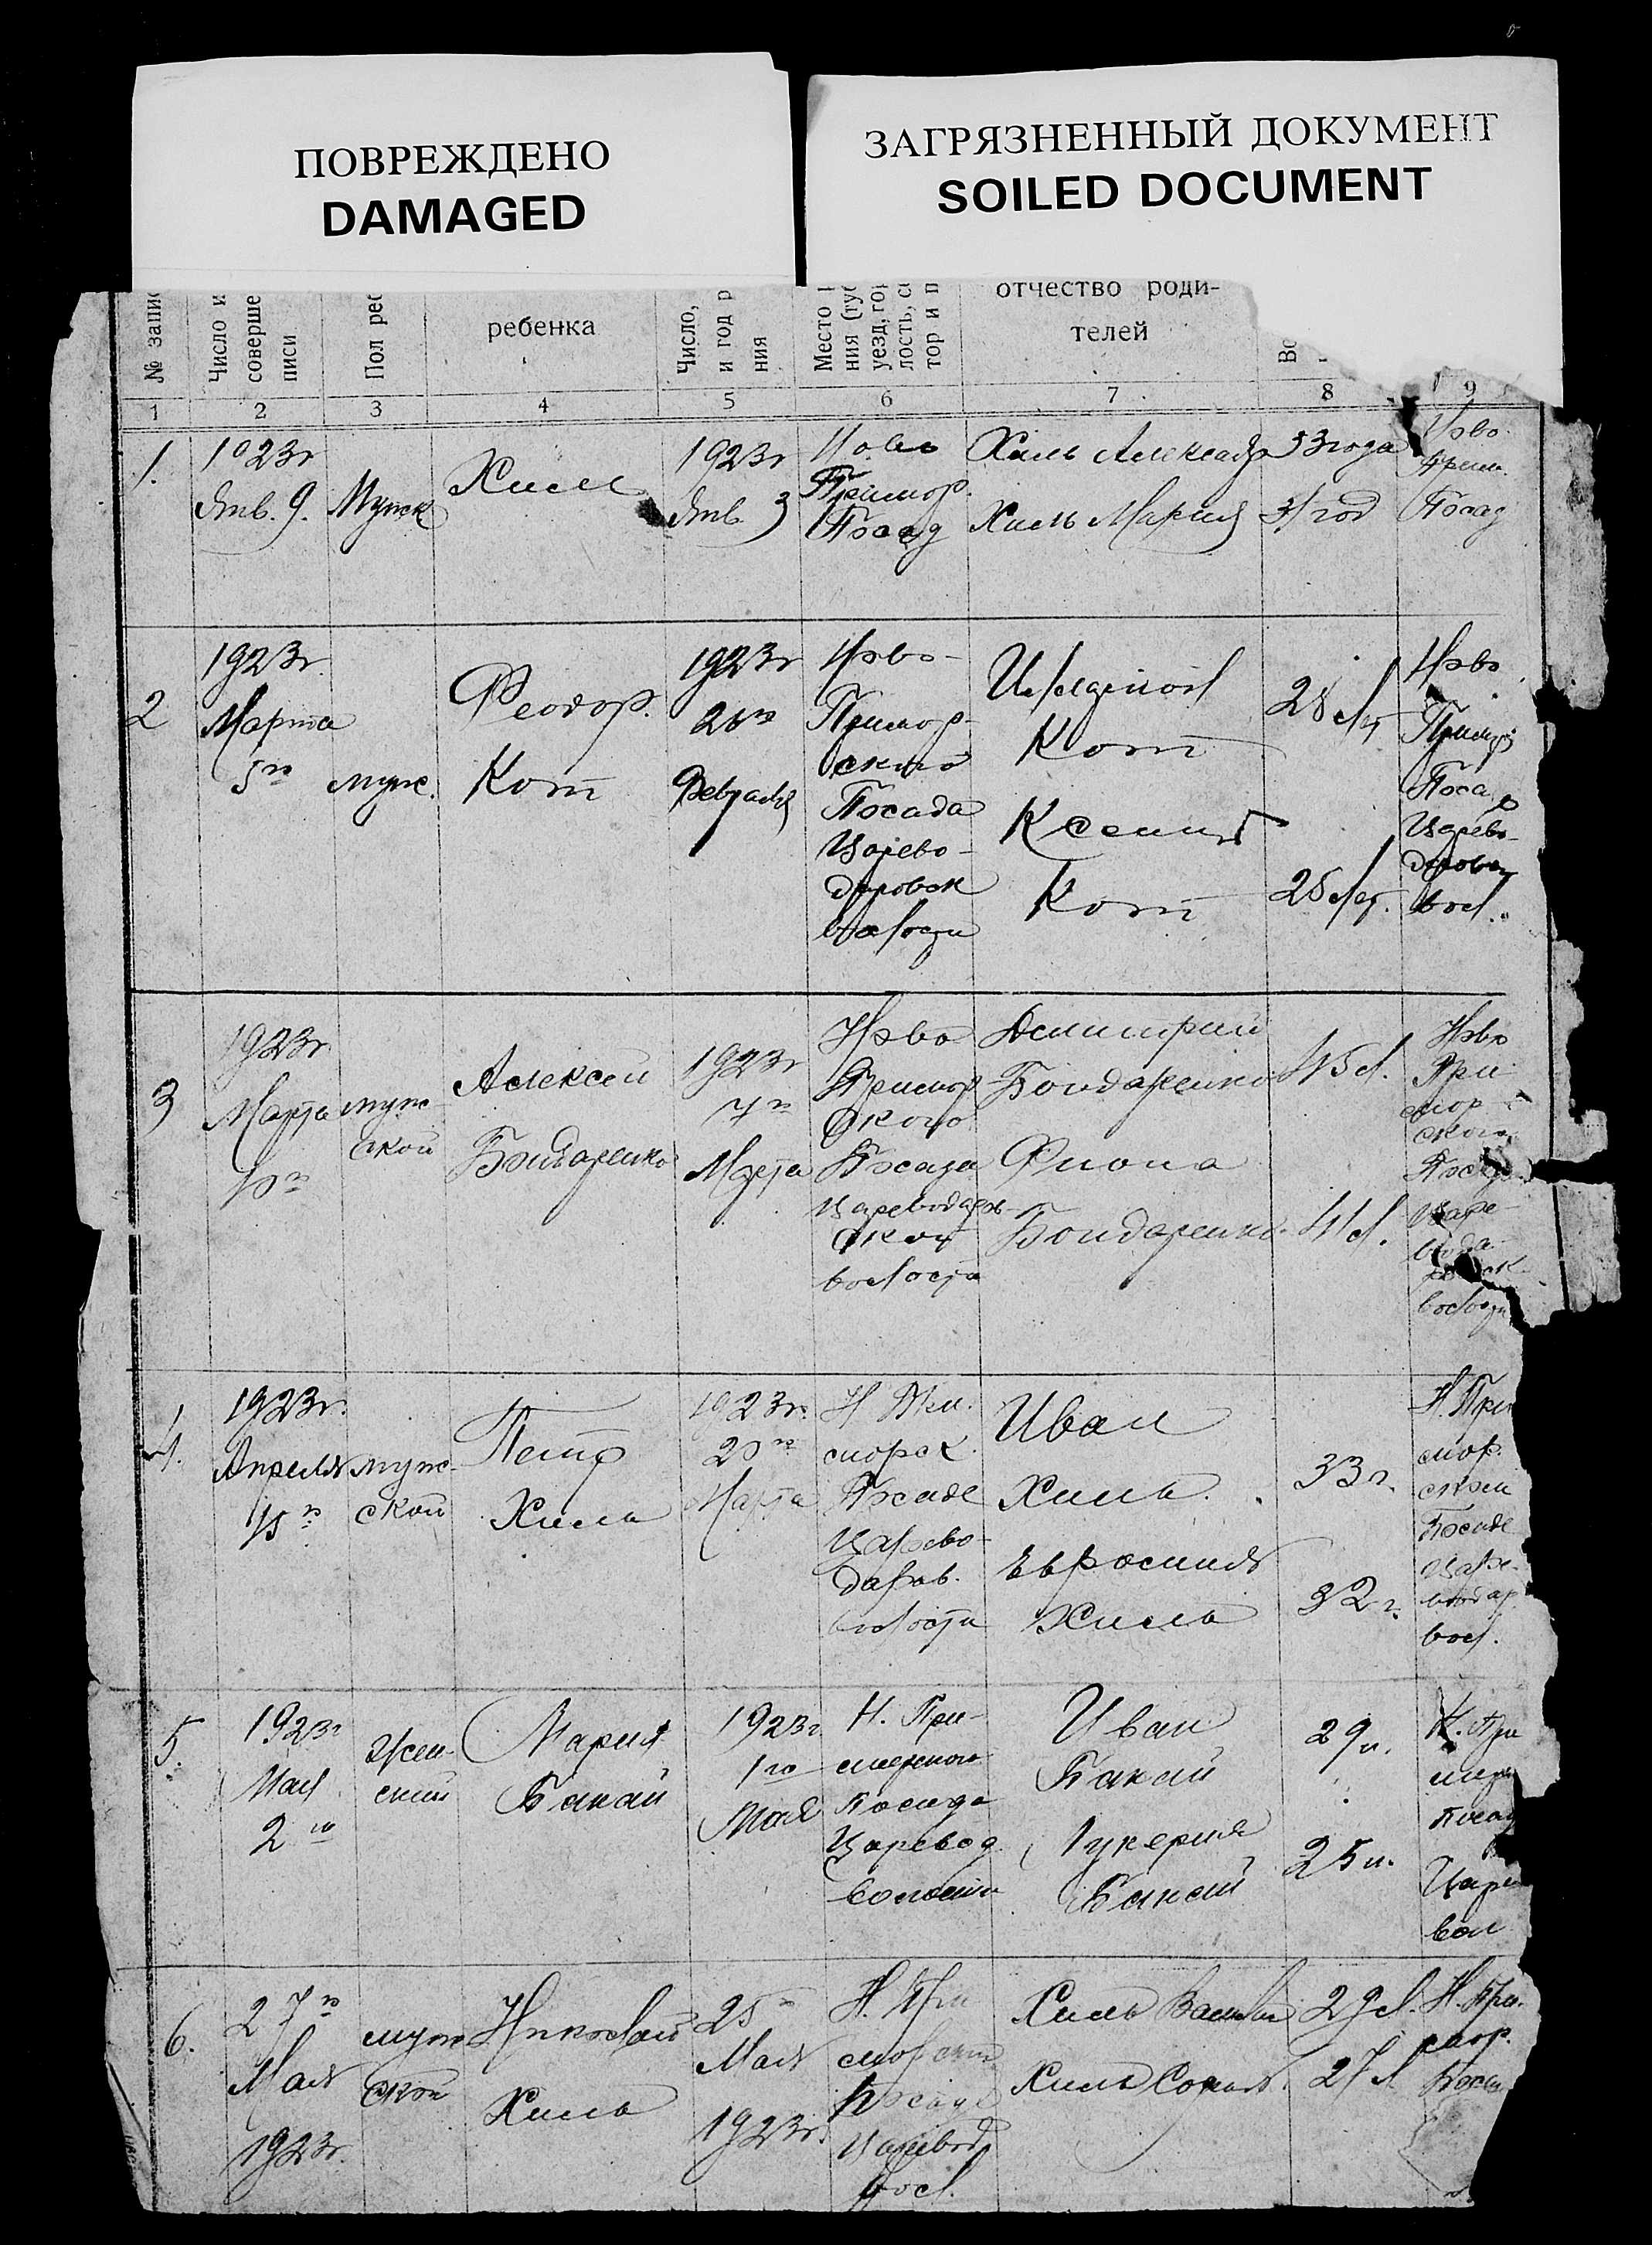 ПОВРЕЖДЕНО
DAMAGED
ЗАГРЯЗНЕННЫЙ ДОКУМЕНТ
SOILED DOCUMENT
№ запис
Число и
соверше
писи
Пол реб
ребенка
Число,
и год р
ния
Место
ния (гу
уезд, гор
лость, с
тор и п
отчество роди-
телей
Во
1 2 3 4 5 6 7 8 9
1.
1923г
Янв. 9.
Мужск
Хиль
1923г
Янв. 3
Ново
Примор.
Посад
Хиль Александр
Хиль Мария
33 года
31 год
Ново
Прим.
Посад
2
1923г.
Марта
5го
муж.
Феодор.
Кот
1923г
Февраля
Ново-
Примор-
ского
Посада
Царево-
даровск
волости
Кот
Ксения
Кот
28 лет
25 лет.
Ново
Посад
Царево-
вол.
3
1923г.
Марта
муж-
ской
Алексей
Бондаренко
1923г
7го
Марта
Ново
Примор
ского
Посада
Цареводаров-
ской
волости
Димитрий
Бондаренко
Фиона
Бондаренко
45 л.
41 л.
Ново
При
мор
ского
Посад
Царе-
вода-
волости
4.
1923г.
Апреля
15го
муж-
ской
Петр
Хиль
1923г.
20го
Марта
Н При-
морск.
Посаде
Царево-
даров.
волости
Иван
Хиль.
Евросиния
Хиль
33 г.
32 г.
Н. При
мор.
ском
Посаде
Царе-
водар
вол.
5.
1923г
Мая
2го
Жен-
ский
Мария
Бакай
1923г
1го
Мая
Н. При-
морского
Посада
Царевод.
волости
Иван
Бакай
Лукерия
Бакай
29 л.
25 л.
Н. При
мор
Посад
Царе
вол
6.
27го
Мая
1923г.
муж
ской
Николай
Хиль
25го
Мая
1923г.
Н. При
морском
Посаде
Царевод
вол.
Хиль
Хиль
29 л.
27 л
Н. При-
мор.
Посад